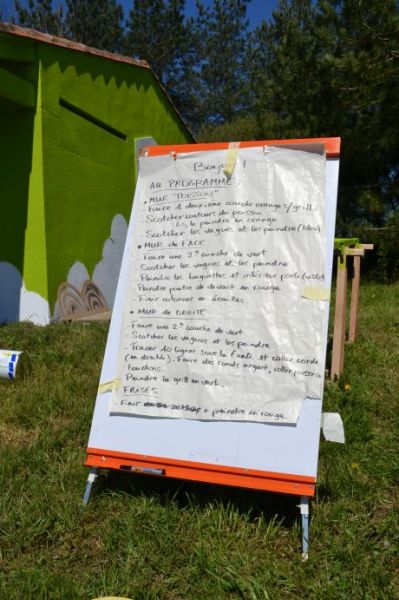 Bonjour !
AU PROGRAMME :
• MUR "POISSON"
- Faire 1 deuxième couche orange s/ grill
- Scotcher contours de poisson
↳ le peindre en orange
- Scotcher les vagues et les peindre (bleu)
• MUR de FACE
- Faire une 2e couche de vert
- Scotcher les vagues et les peindre
- Peindre les baguettes et intérieur porte
- Peindre poutre de devant en rouge
- Finir colonnes en écailles
• MUR de DROITE
- Faire une 2e couche de vert
- Scotcher les vagues et les peindre
- Tracer 10 lignes sous la et coller corde
(en double). Faire des ronds argent, coller poissons
bouchons.
- Peindre la grill en vert
• FRISES
- Finir + peindre en rouge